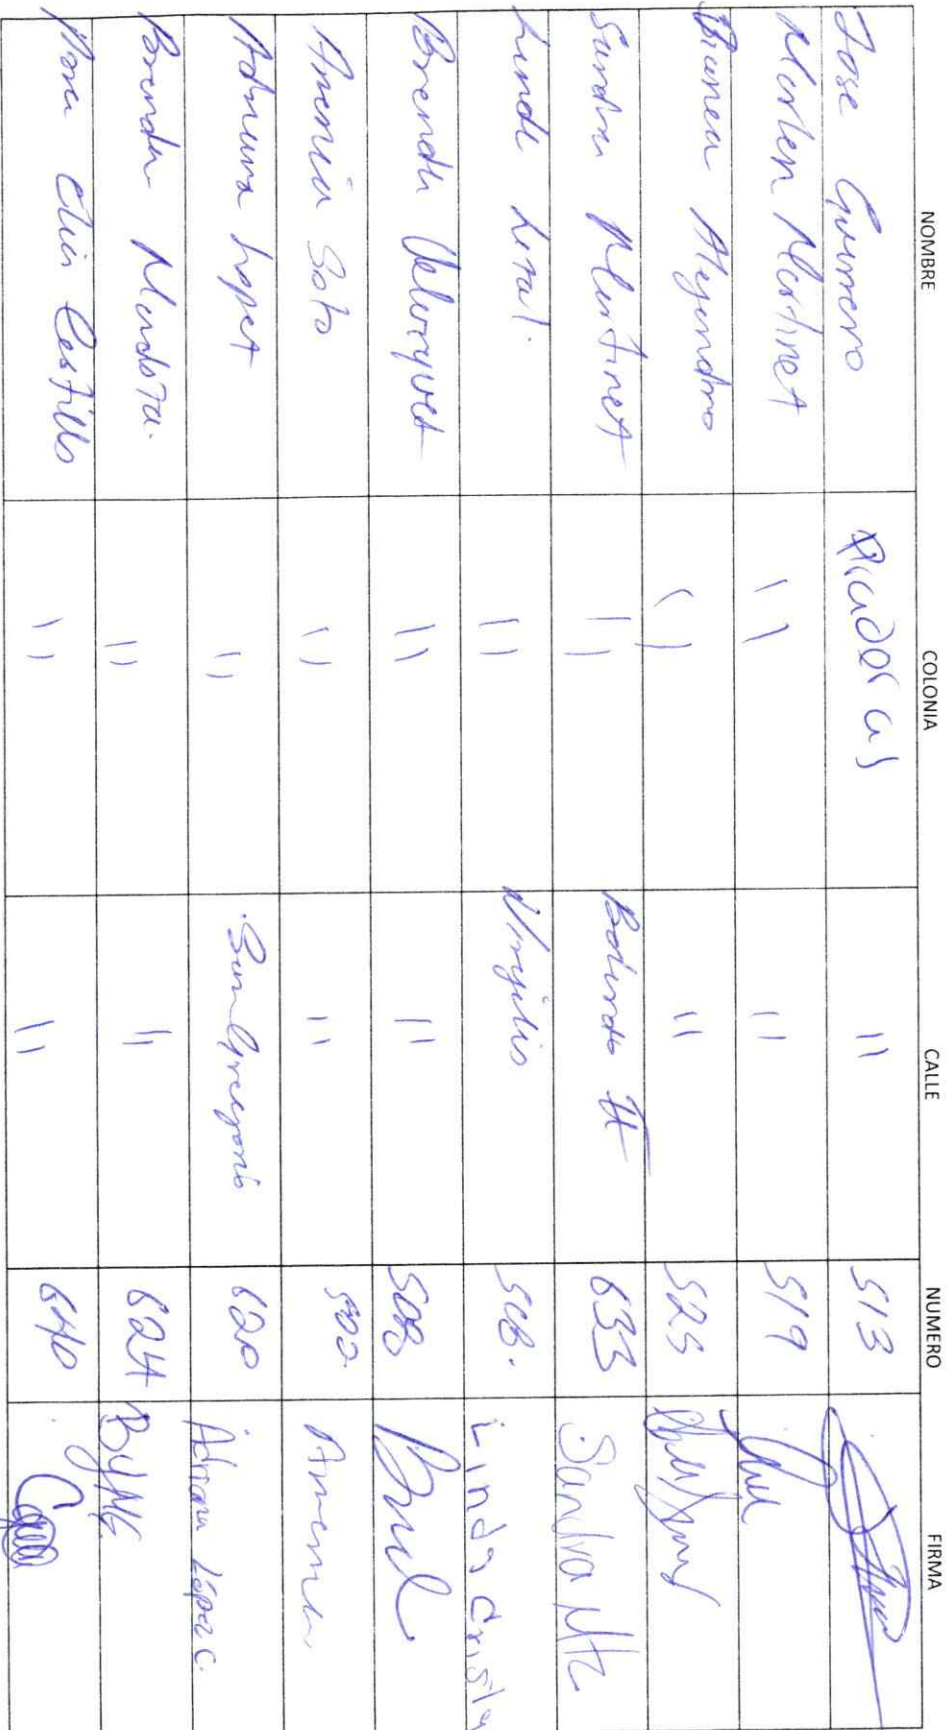 NOMBRE COLONIA CALLE NUMERO FIRMA
Jose Guerrero Praderas " 513
Marlen Martinez " " 519
Bianca Alejandro " " 525
Sandra Martinez " Bolardo II 633 Sandra Mtz
Linda Leral. " Virgilio 508. Linda Crista
Brenda Velazquez " " 508
America Soto " " 502 America
Adriana Lopez " San Gregorio 620 Adriana López C.
Brenda Mendoza. " " 624 ByMG
Elia Castillo " " 640